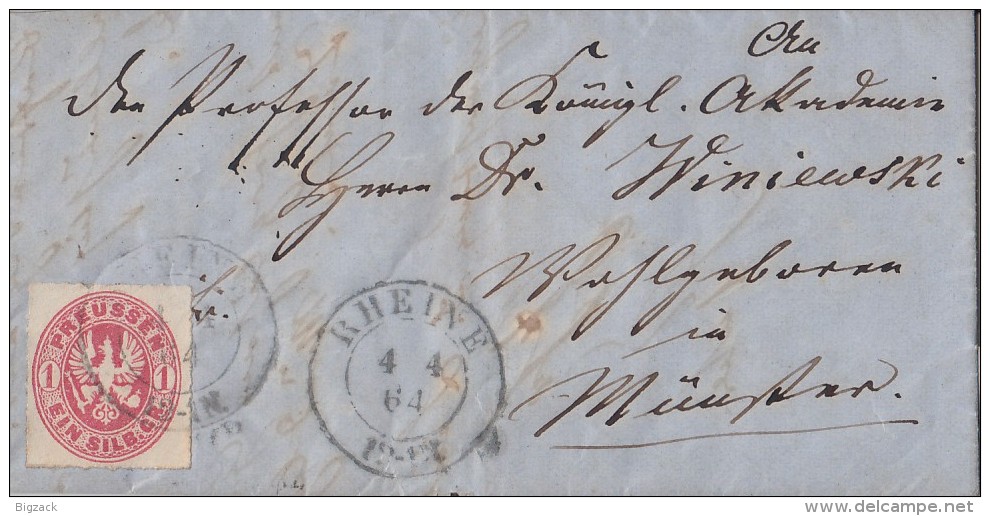 An
den Professor der Königl. Akademie
Herrn Dr. Winiewski
Wohlgeboren
in
Münster.
fr.
PREUSSEN
1 1
EIN SILB.GR.
RHEINE
4 4
64
Bigzack
www.delcampe.net